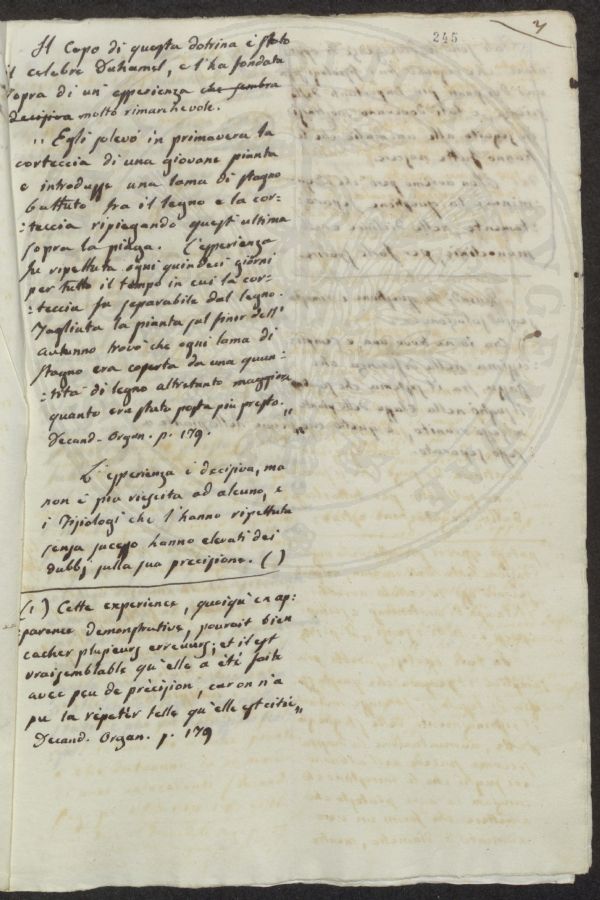 245
Il Capo di questa dotrina è stato
il celebre Duhamel, e l'ha fondata
sopra di un' esperienza che sembra
decisiva molto rimarchevole.
" Egli solevò in primavera la
corteccia di una giovane pianta
e introdusse una lama di stagno
battuto fra il legno e la cor-
-teccia ripiegando quest'ultima
sopra la piaga. L'esperienza
fu ripettuta ogni quindeci giorni
per tutto il tempo in cui la cor-
-teccia fu separabile dal legno.
Tagliata la pianta sul finir dell'
autunno trovò che ogni lama di
stagno era coperta da una quan-
-tità di legno altretanto maggiore
quanto era stata posta più presto. "
Decand. Organ. p. 179.
L'esperienza è decisiva, ma
non è più riescita ad alcuno, e
i Fisiologi che l'hanno ripettuta
senza sucesso hanno elevati dei
dubbj sulla sua precisione. ( )
(1) Cette experience, quoiqu'en ap:
:parence demonstrative, pouroit bien
cacher plusieurs erreurs; et il est
vraisemblable qu'elle a été faite
avec peu de prècision, car on n'a
pu la répetér telle qu'elle est citée "
Decand. Organ. p. 179